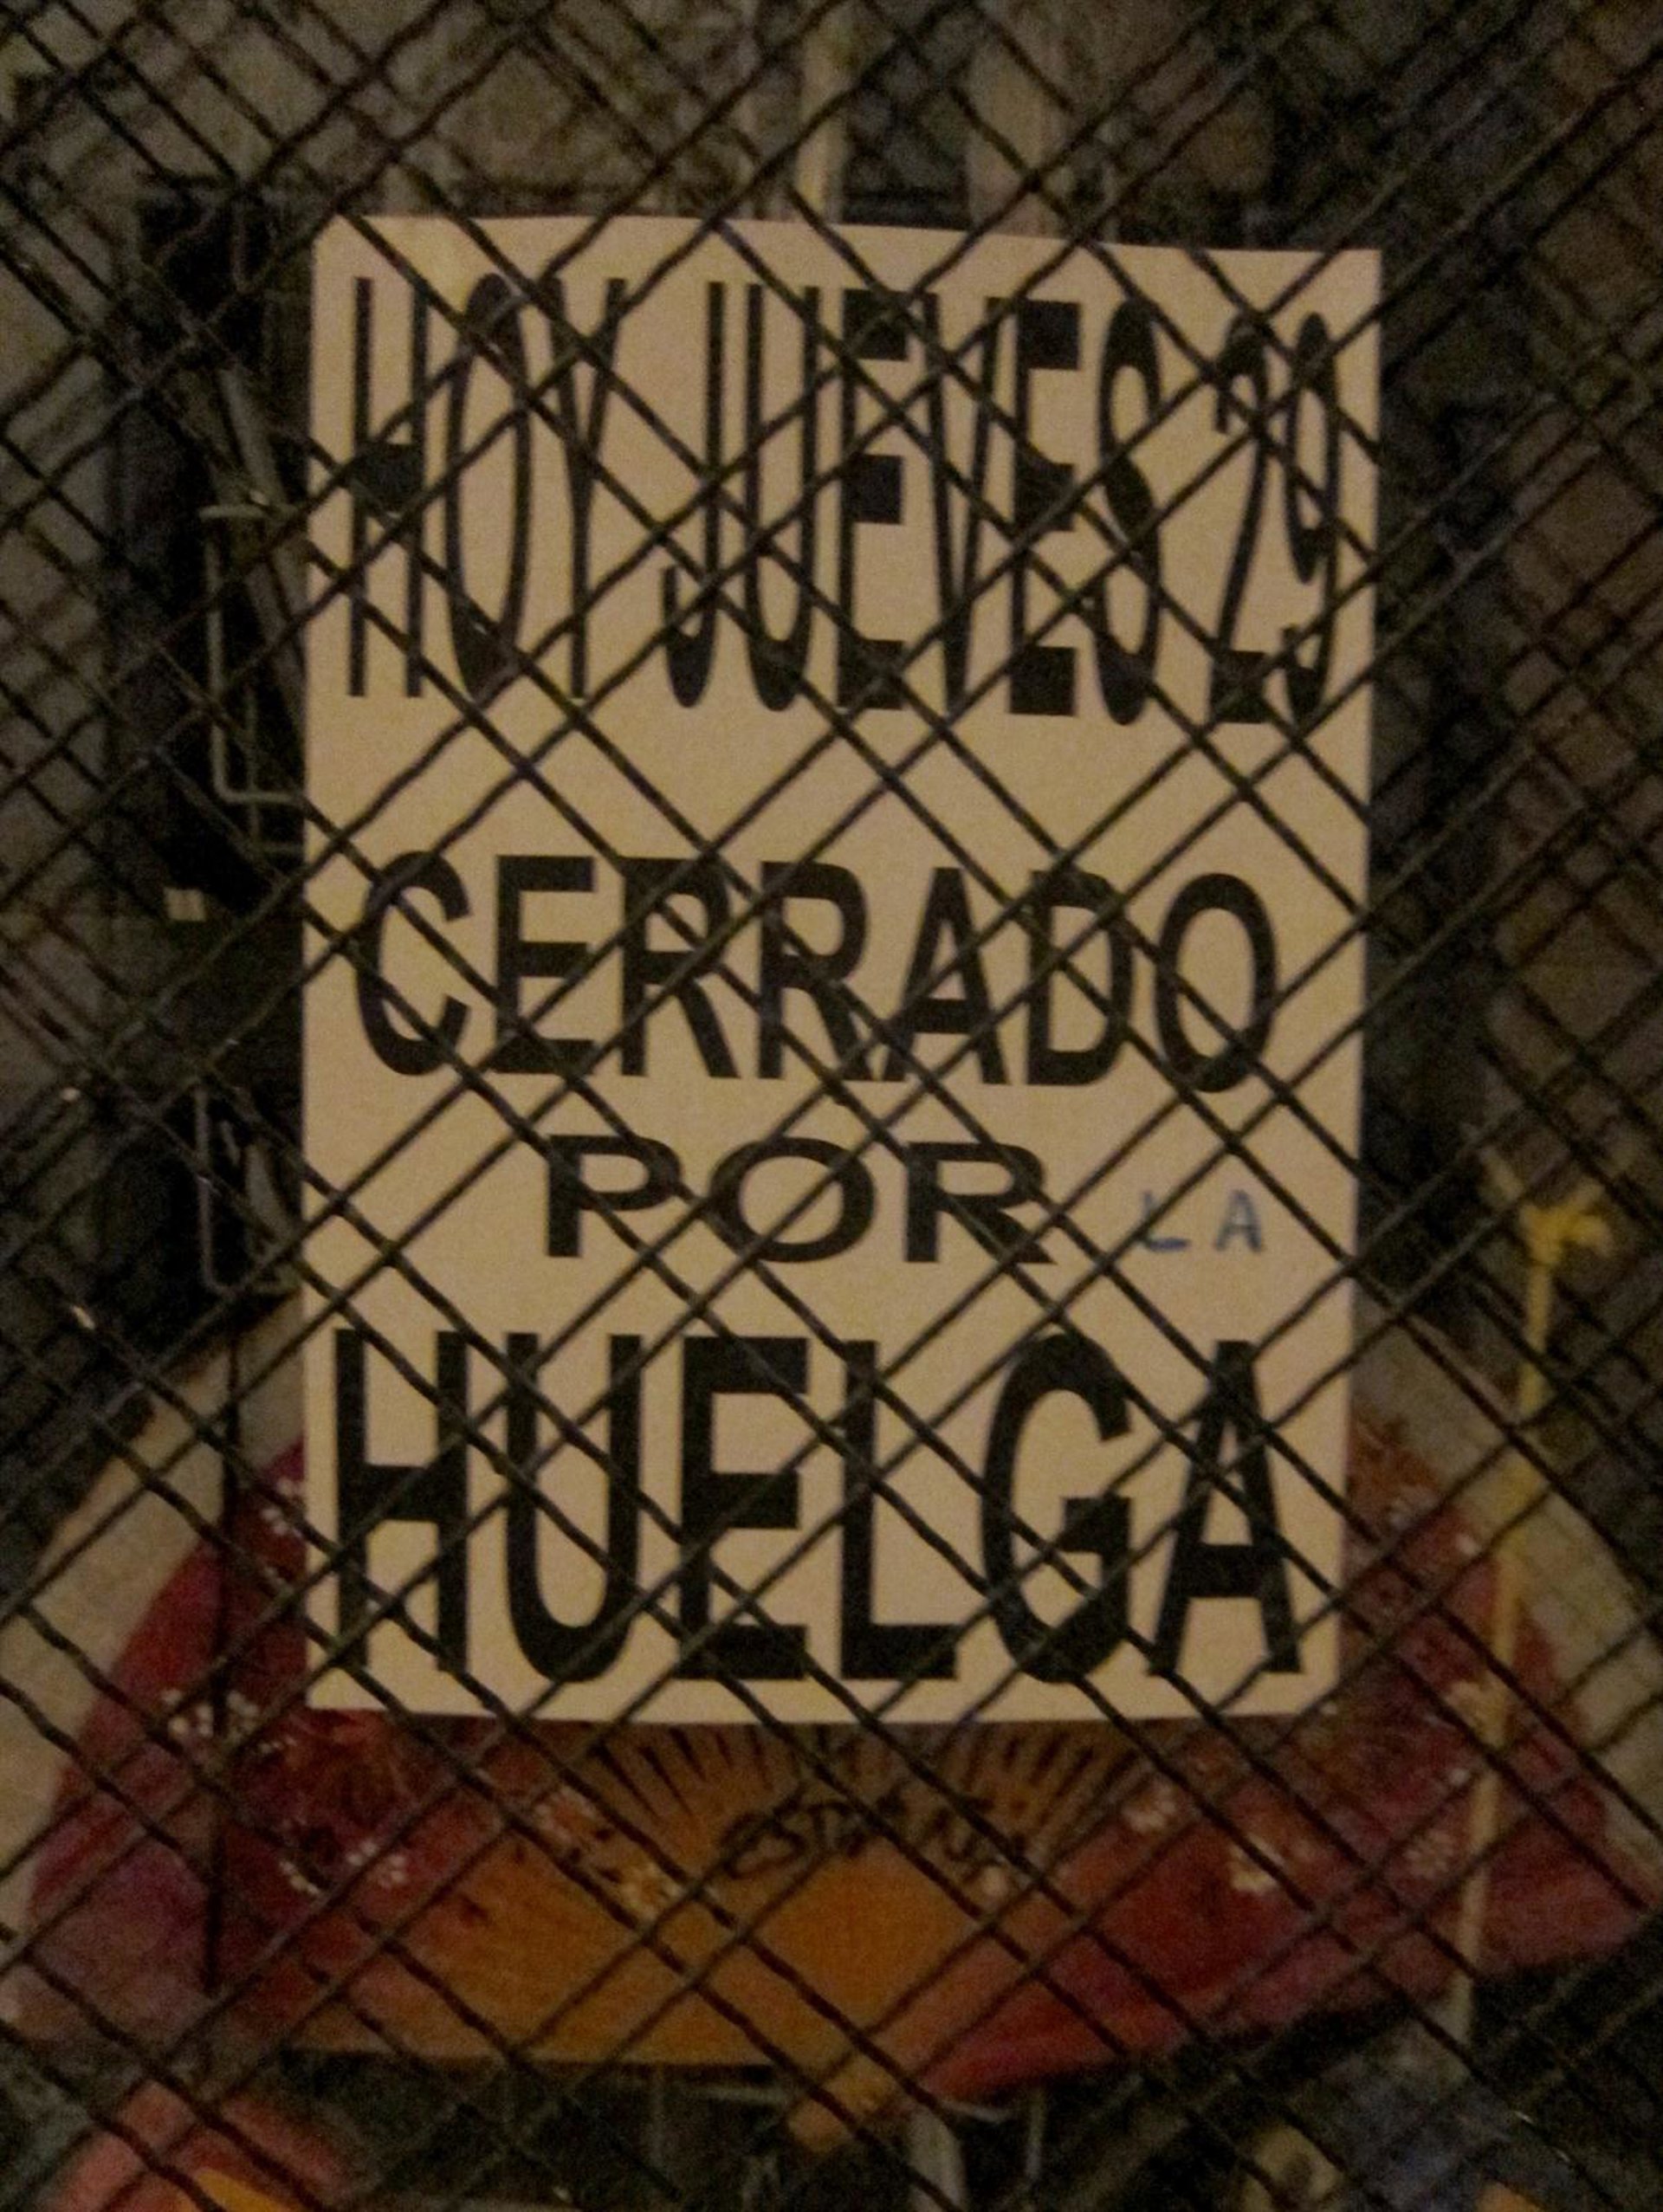 HOY JUEVES 29
CERRADO
POR LA
HUELGA